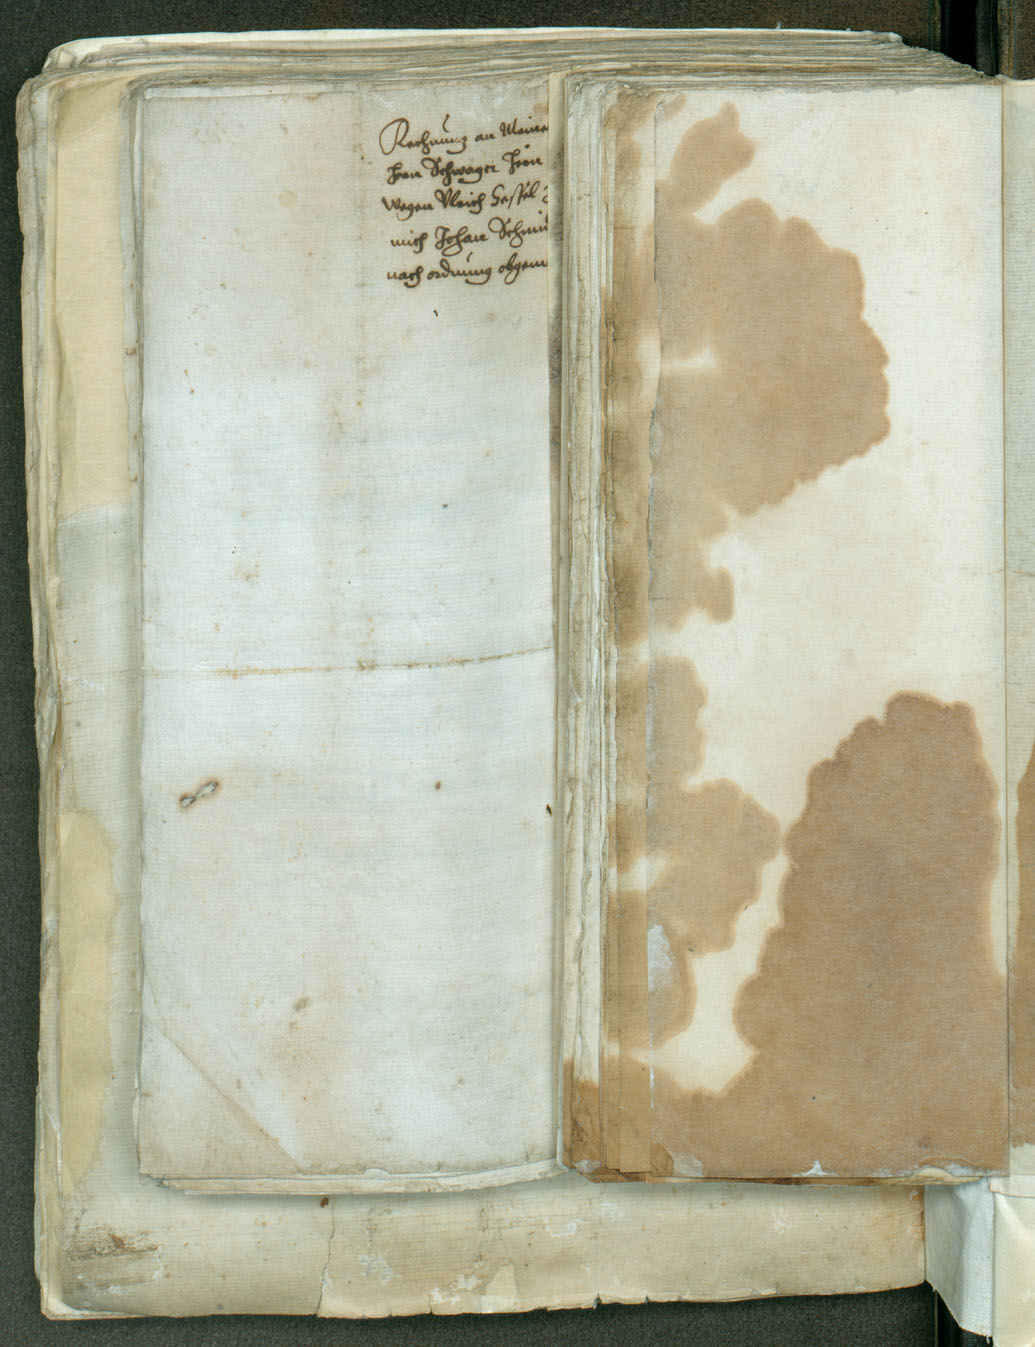 Rechnung an Meine
hern Schwager hern
wegen Vlrich Gassel
mich Johan Schmi
nach ordnung obgem